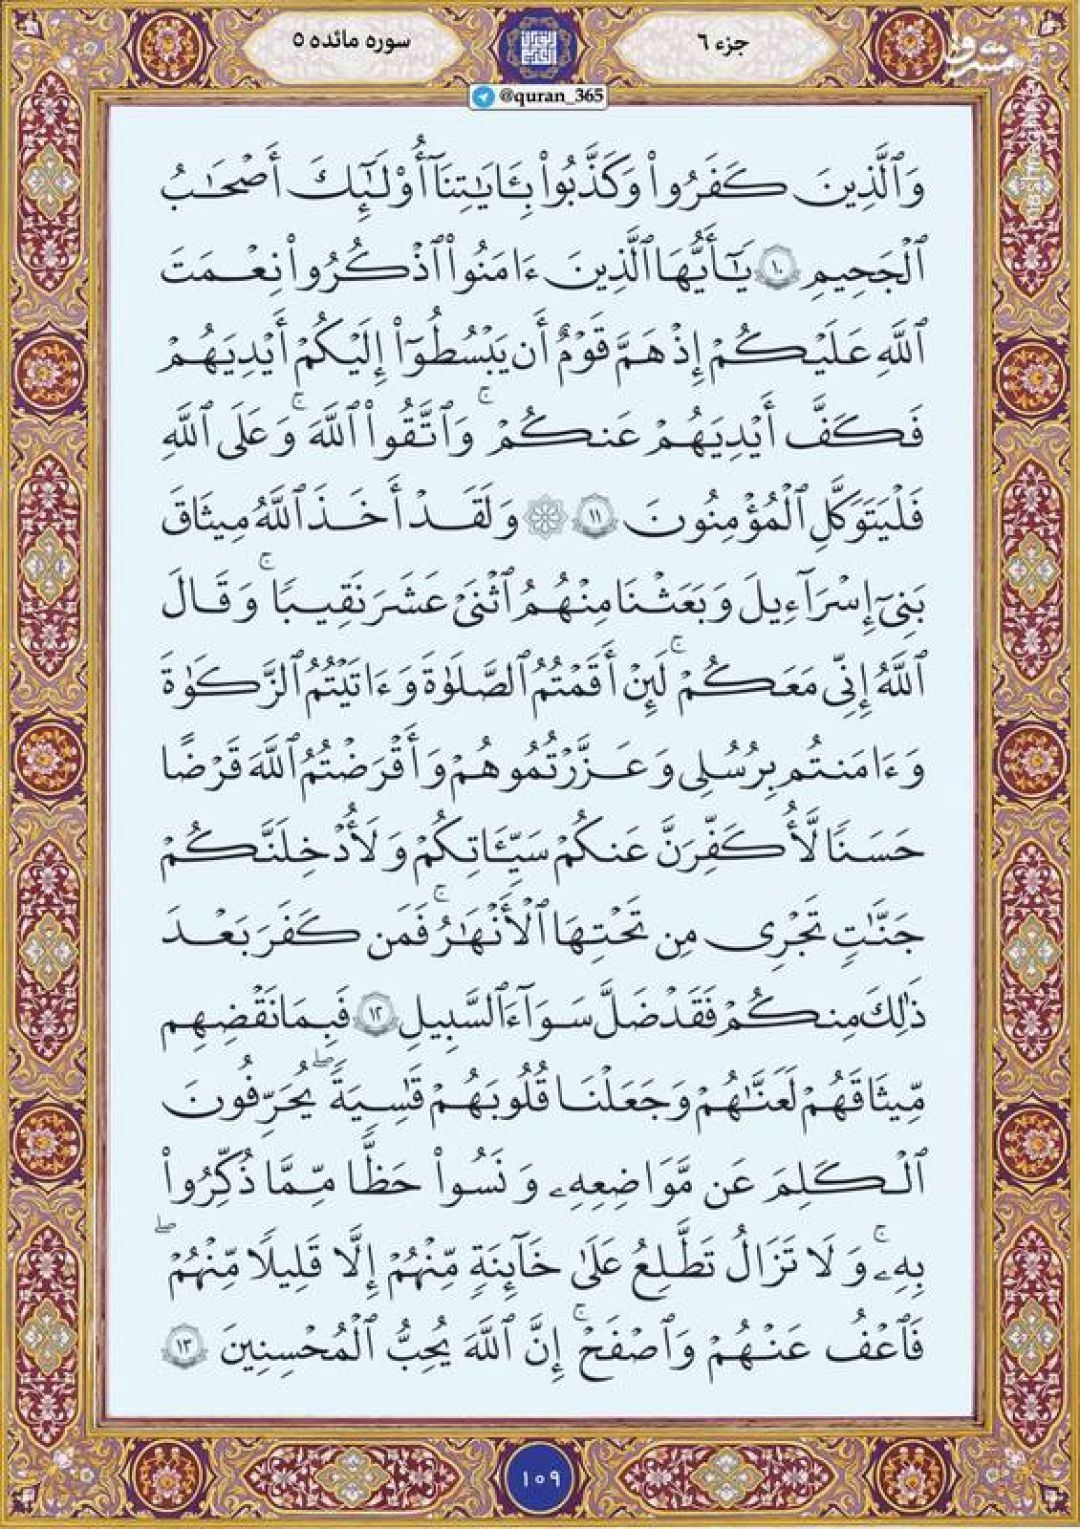 جزء ۶
سوره مائده ۵
@quran_365
وَٱلَّذِينَ كَفَرُواْ وَكَذَّبُواْ بِـَٔايَٰتِنَآ أُوْلَٰٓئِكَ أَصْحَٰبُ
ٱلْجَحِيمِ ١٠ يَٰٓأَيُّهَا ٱلَّذِينَ ءَامَنُواْ ٱذْكُرُواْ نِعْمَتَ
ٱللَّهِ عَلَيْكُمْ إِذْ هَمَّ قَوْمٌ أَن يَبْسُطُوٓاْ إِلَيْكُمْ أَيْدِيَهُمْ
فَكَفَّ أَيْدِيَهُمْ عَنكُمْ ۚ وَٱتَّقُواْ ٱللَّهَ ۚ وَعَلَى ٱللَّهِ
فَلْيَتَوَكَّلِ ٱلْمُؤْمِنُونَ ١١ ۞ وَلَقَدْ أَخَذَ ٱللَّهُ مِيثَٰقَ
بَنِىٓ إِسْرَٰٓءِيلَ وَبَعَثْنَا مِنْهُمُ ٱثْنَىْ عَشَرَ نَقِيبًا ۖ وَقَالَ
ٱللَّهُ إِنِّى مَعَكُمْ ۖ لَئِنْ أَقَمْتُمُ ٱلصَّلَوٰةَ وَءَاتَيْتُمُ ٱلزَّكَوٰةَ
وَءَامَنتُم بِرُسُلِى وَعَزَّرْتُمُوهُمْ وَأَقْرَضْتُمُ ٱللَّهَ قَرْضًا
حَسَنًا لَّأُكَفِّرَنَّ عَنكُمْ سَيِّـَٔاتِكُمْ وَلَأُدْخِلَنَّكُمْ
جَنَّٰتٍ تَجْرِى مِن تَحْتِهَا ٱلْأَنْهَٰرُ ۚ فَمَن كَفَرَ بَعْدَ
ذَٰلِكَ مِنكُمْ فَقَدْ ضَلَّ سَوَآءَ ٱلسَّبِيلِ ١٢ فَبِمَا نَقْضِهِم
مِّيثَٰقَهُمْ لَعَنَّٰهُمْ وَجَعَلْنَا قُلُوبَهُمْ قَٰسِيَةً ۖ يُحَرِّفُونَ
ٱلْكَلِمَ عَن مَّوَاضِعِهِۦ وَنَسُواْ حَظًّا مِّمَّا ذُكِّرُواْ
بِهِۦ ۚ وَلَا تَزَالُ تَطَّلِعُ عَلَىٰ خَآئِنَةٍ مِّنْهُمْ إِلَّا قَلِيلًا مِّنْهُمْ ۖ
فَٱعْفُ عَنْهُمْ وَٱصْفَحْ ۚ إِنَّ ٱللَّهَ يُحِبُّ ٱلْمُحْسِنِينَ ١٣
١٠٩